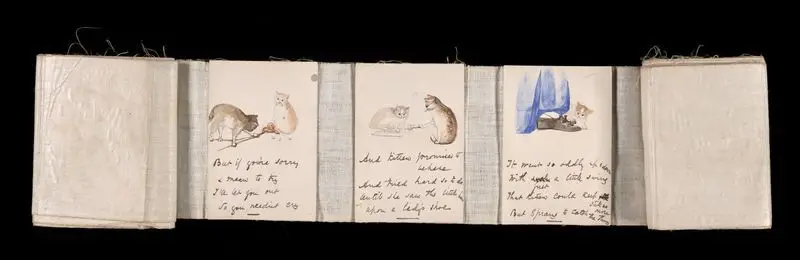 But if you're sorry
& mean to try
I'll let you out
So you needn't cry
And Kitten promised to
behave
And tried hard so to do
Until she saw the little
upon a lady's shoe
It went so oddly up & down
With such a little swing
just
That Kitten could keep still
no more
But Sprang to Catch the thing